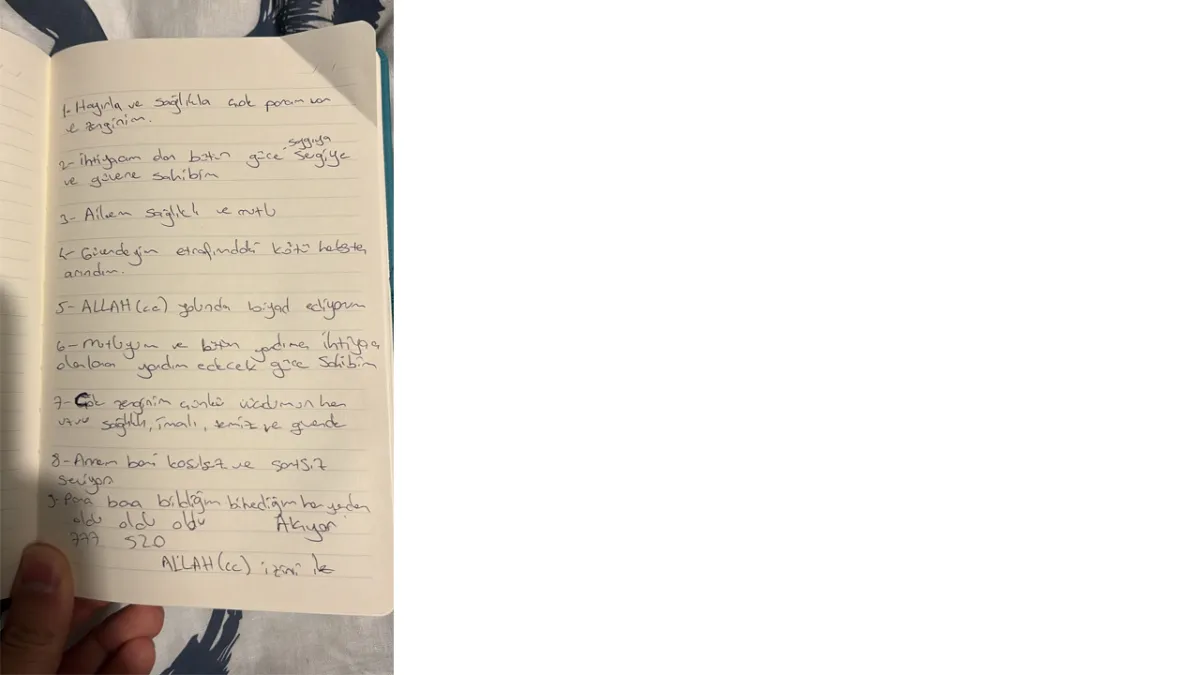 1- Hayırla ve sağlıkla çok param var
ve zenginim.
saygıya
2- İhtiyacım olan bütün güce sevgiye
ve güvene sahibim
3- Ailem sağlıklı ve mutlu
4- Güvendeyim etrafımdaki kötü
arındım.
5- ALLAH(cc) yolunda ediyorum
6- Mutluyum ve bütün yardıma ihtiyacı
olanlara yardım edecek güce sahibim
7- Çok zenginim çünkü vücudumun her
uzvu sağlıklı, temiz ve güvende
8- Annem beni koşulsuz ve şartsız
seviyor
9- Para bana bildiğim bilmediğim her yerden
oldu oldu oldu Akıyor
777 520
ALLAH(cc) izni ile